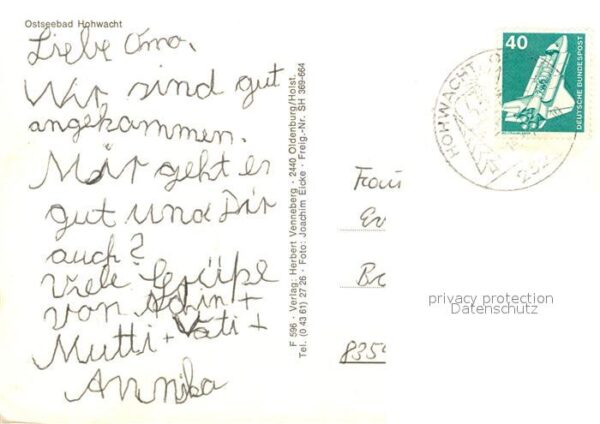 Ostseebad Hohwacht
Liebe Oma.
Wir sind gut
angekammen.
Mir geht es
gut und Dir
auch?
Viele Grüße
von Achin +
Mutti + Vati +
Annika
F 596 · Verlag: Herbert Venneberg · 2440 Oldenburg/Holst.
Tel. (0 43 61) 27 26 · Foto: Joachim Eicke · Freig.-Nr. SH 369-664
40
DEUTSCHE BUNDESPOST
HOHWACHT
Frau
835
privacy protection
Datenschutz